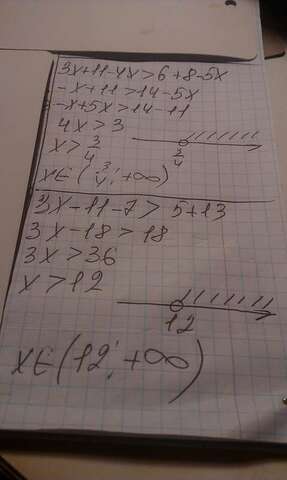 3x+11-4x>6+8-5x
-x+11>14-5x
-x+5x>14-11
4x>3
x>3/4
3/4
x∈(3/4; +∞)
3x-11-7>5+13
3x-18>18
3x>36
x>12
12
x∈(12; +∞)